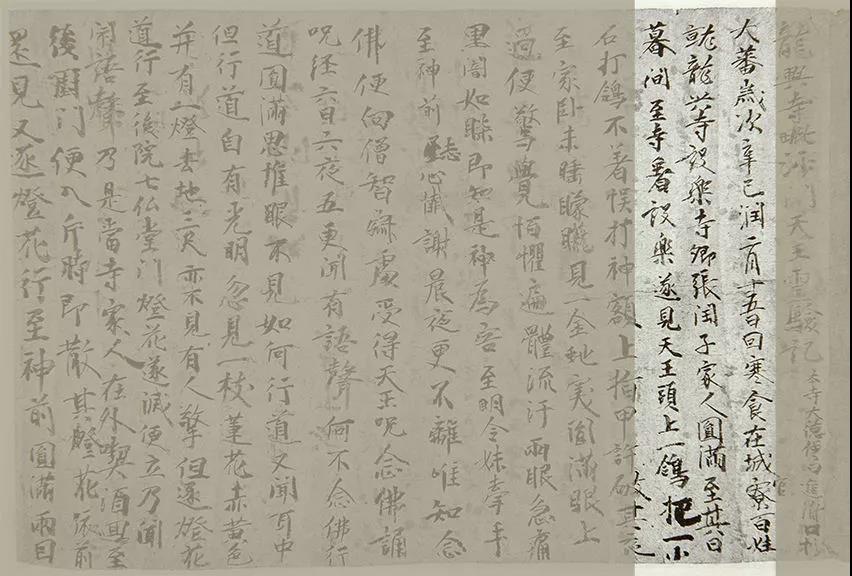 龍興寺毗沙門天王靈驗記 本寺大德僧日進附口抄
大蕃歲次辛巳閏二月十五日因寒食在城寮百姓
就龍興寺設樂寺卿張閏子家人圓滿至其日
暮間至寺看設樂遂見天王頭上一鴿把一小
石打鴿不著悞打神額上指甲許破其夜
至家臥未睡朦朧見一金虵突圓滿眼上
過便驚覺怕懼遍體流汗兩眼急痛
黑闇如睺即知是神為害至明令妹牽手
至神前志心懺謝晨夜更不離唯知念
佛便向僧智寂處受得天王呪念佛誦
呪經六日六夜五更聞有語聲何不念佛行
道圓滿思惟眼不見如何行道又聞耳中
但行道自有光明忽見一枝蓮花赤黃色
并有一燈去地三尺亦不見有人擎但逐燈花
道行至後院七仏堂門燈花遂滅便立乃聞
閙語聲乃是當寺家人在外喫酒迴至
後廚門便入片時即散其燈花依前
還見又逐燈花行至神前圓滿兩目